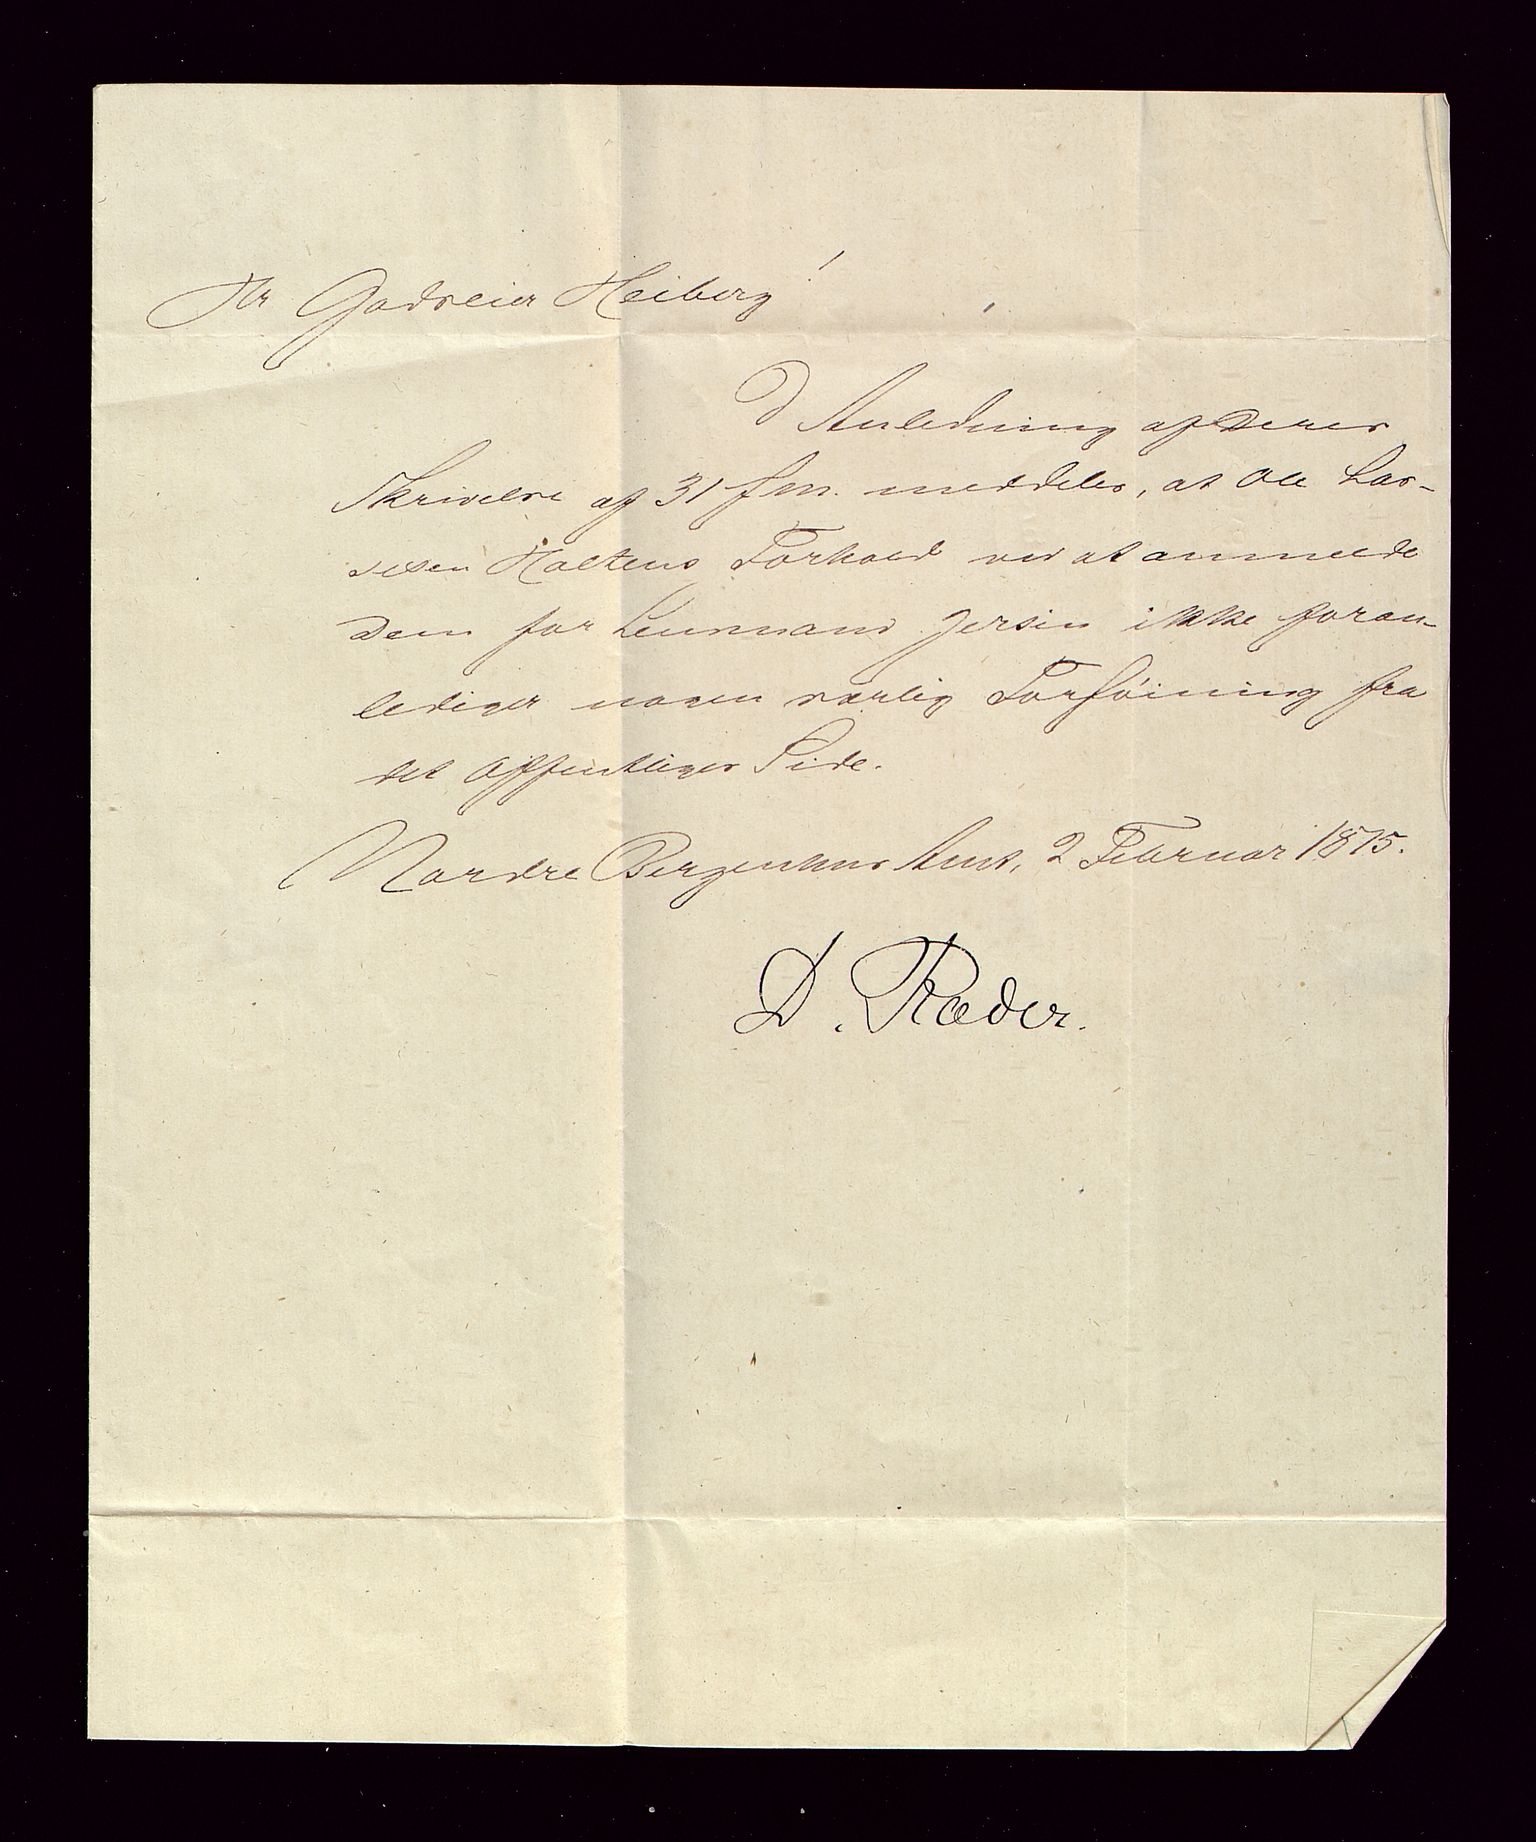 Hr Godseier Heiberg!
I Anledning af Deres
Skrivelse af 31 f. m. meddeles, at Ole Lar-
sesen Holtens Forhold ved at anmelde
Dem for Lensmand Jersin ikke foran-
lediger nogen særlig Forføining fra
det Offentliges Side.
Nordre Bergenhus Amt, 2 Februar 1875.
D. Ræder.